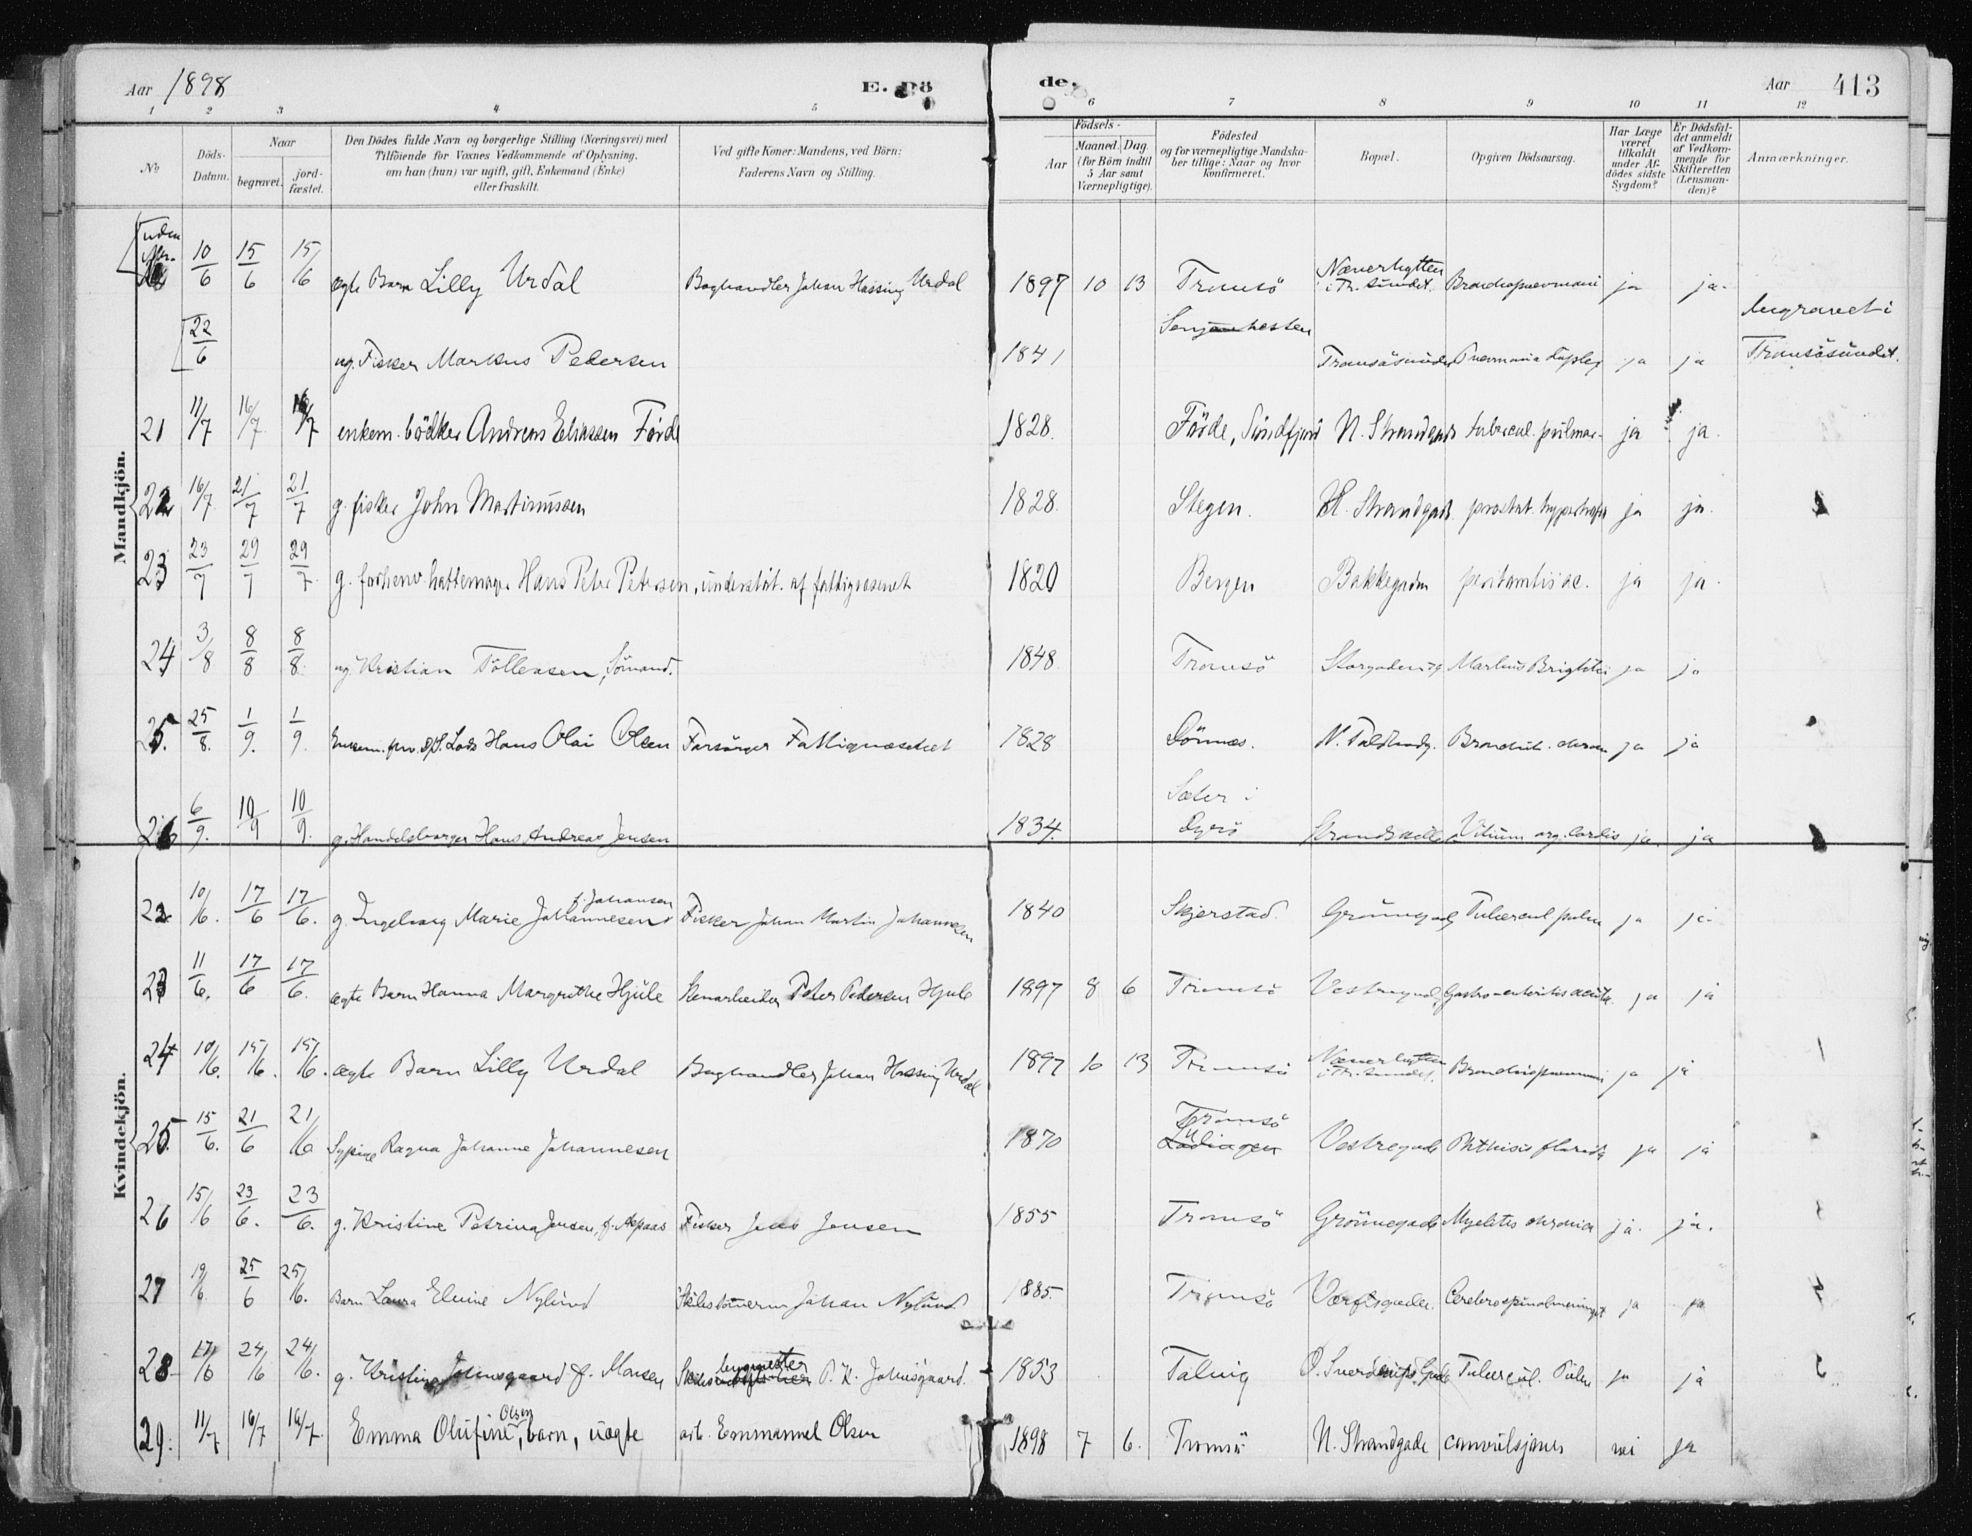 Aar 1898 E. Dö de. Aar 413
1 2 3 4 5 6 7 8 9 10 11 12
No
Döds-Datum.
Naar begravet. jordfæstet.
Den Dödes fulde Navn og borgerlige Stilling (Næringsvei) med
Tilföiende for Voxnes Vedkommende af Oplysning,
om han (hun) var ugift, gift, Enkemand (Enke)
eller fraskilt.
Ved gifte Koner: Mandens, ved Börn:
Faderens Navn og Stilling.
Födsels-
Aar Maaned. Dag. (for Börn indtil 5 Aar samt Værnepligtige).
Födested
og for værnepligtige Mandskaber tillige: Naar og hvor konfirmeret.
Bopæl.
Opgiven Dödsaarsag.
Har Læge været tilkaldt under Afdödes sidste Sygdom?
Er Dödsfaldet anmeldt af Vedkommende for Skifteretten (Lensmanden)?
Anmærkninger.
Mandkjön.
uden 10/6 15/6 15/6 ægte Barn Lilly Urdal Boghandler Johan Hassing Urdal 1897 10 13 Tromsö Næverhytten i Tr.sundet. Bronchopneumoni ja ja
22/6 ug. Fisker Markus Pedersen 1841 Senjenhesten Tromsösundet Pneumonia ja ja begravet i Tromsösundet.
21 11/7 16/7 16/7 enkem. bödker Andreas Eliassen Förde 1828. Förde, Söndfjord N. Strandgade tubercul. pulmor. ja ja.
22 16/7 21/7 21/7 g. fisker John Martinussen 1828. Stegen. N. Strandgade prostat. hypertrofi ja ja.
23 23/7 29/7 29/7 g. forhenv. hattemager Hans Peter Petersen, understöt. af fattigvæsenet 1820 Bergen Bakkegaden peritonitis ac. ja ja.
24 3/8 8/8 8/8. ug. Kristian Tollevsen, Sömand. 1848 Tromsö Storgaden Morbus Brightii ja ja
25. 25/8. 1/9. 1/9. Enkem. fhv. Lods Hans Olai Olsen Forsörges Fattigvæsenet 1828 Dönnæs. N. Toldbodg. Bronchit. chron ja ja
26 6/9. 10/9 10/9. g. Handelsborger Hans Andreas Jensen 1834. Sæter i Dyrö Strandskillet Vitium org. cordis ja. ja
Kvindekjön.
22 10/6. 17/6 17/6. g. Ingeborg Marie Johannesen f. Johansen Fisker Johan Martin Johannesen 1840 Skjerstad. Grönnegade Tubercul pulm ja ja
23 11/6. 17/6 17/6. ægte Barn Hanna Margrethe Hjule Stenarbeider Peter Pedersen Hjule 1897 8 6 Tromsö Vestregade Gastro-enteritis acuta. ja ja
24 10/6. 15/6. 15/6. ægte Barn Lilly Urdal Boghandler Johan Hassing Urdal 1897 10 13 Tromsö Næverhytten i Tr.sundet. Bronchopneumoni ja ja
25. 15/6. 21/6 21/6 Sypige Ragna Johanne Johannesen 1870 Tromsö Lödingen Vestregade Phthisis florida ja ja
26 15/6 23/6. 23/6. g. Kristine Petrina Jensen, f. Aspaas Fisker Jens Jensen 1855 Tromsö Grönnegade Myelitis chronica ja. ja.
27 19/6 25/6 25/6. Barn Laura Elvine Nylund Skibstömrer Johan Nylund 1885. Tromsö Værftsgaden. Cerebrospinalmeningit ja ja
28 17/6 24/6 24/6. g. Kristine Johnsgaard f. Monsen Skibsbygmester P. K. Johnsgaard. 1853 Talvig O. Sverdrups Gade Tubercul. Pulm ja ja
29. 11/7 16/7 16/7 Emma Olufine Olsen, barn, uægte arb. Emmanuel Olsen 1898 7 6. Tromsö N. Strandgade convulsjoner nei ja